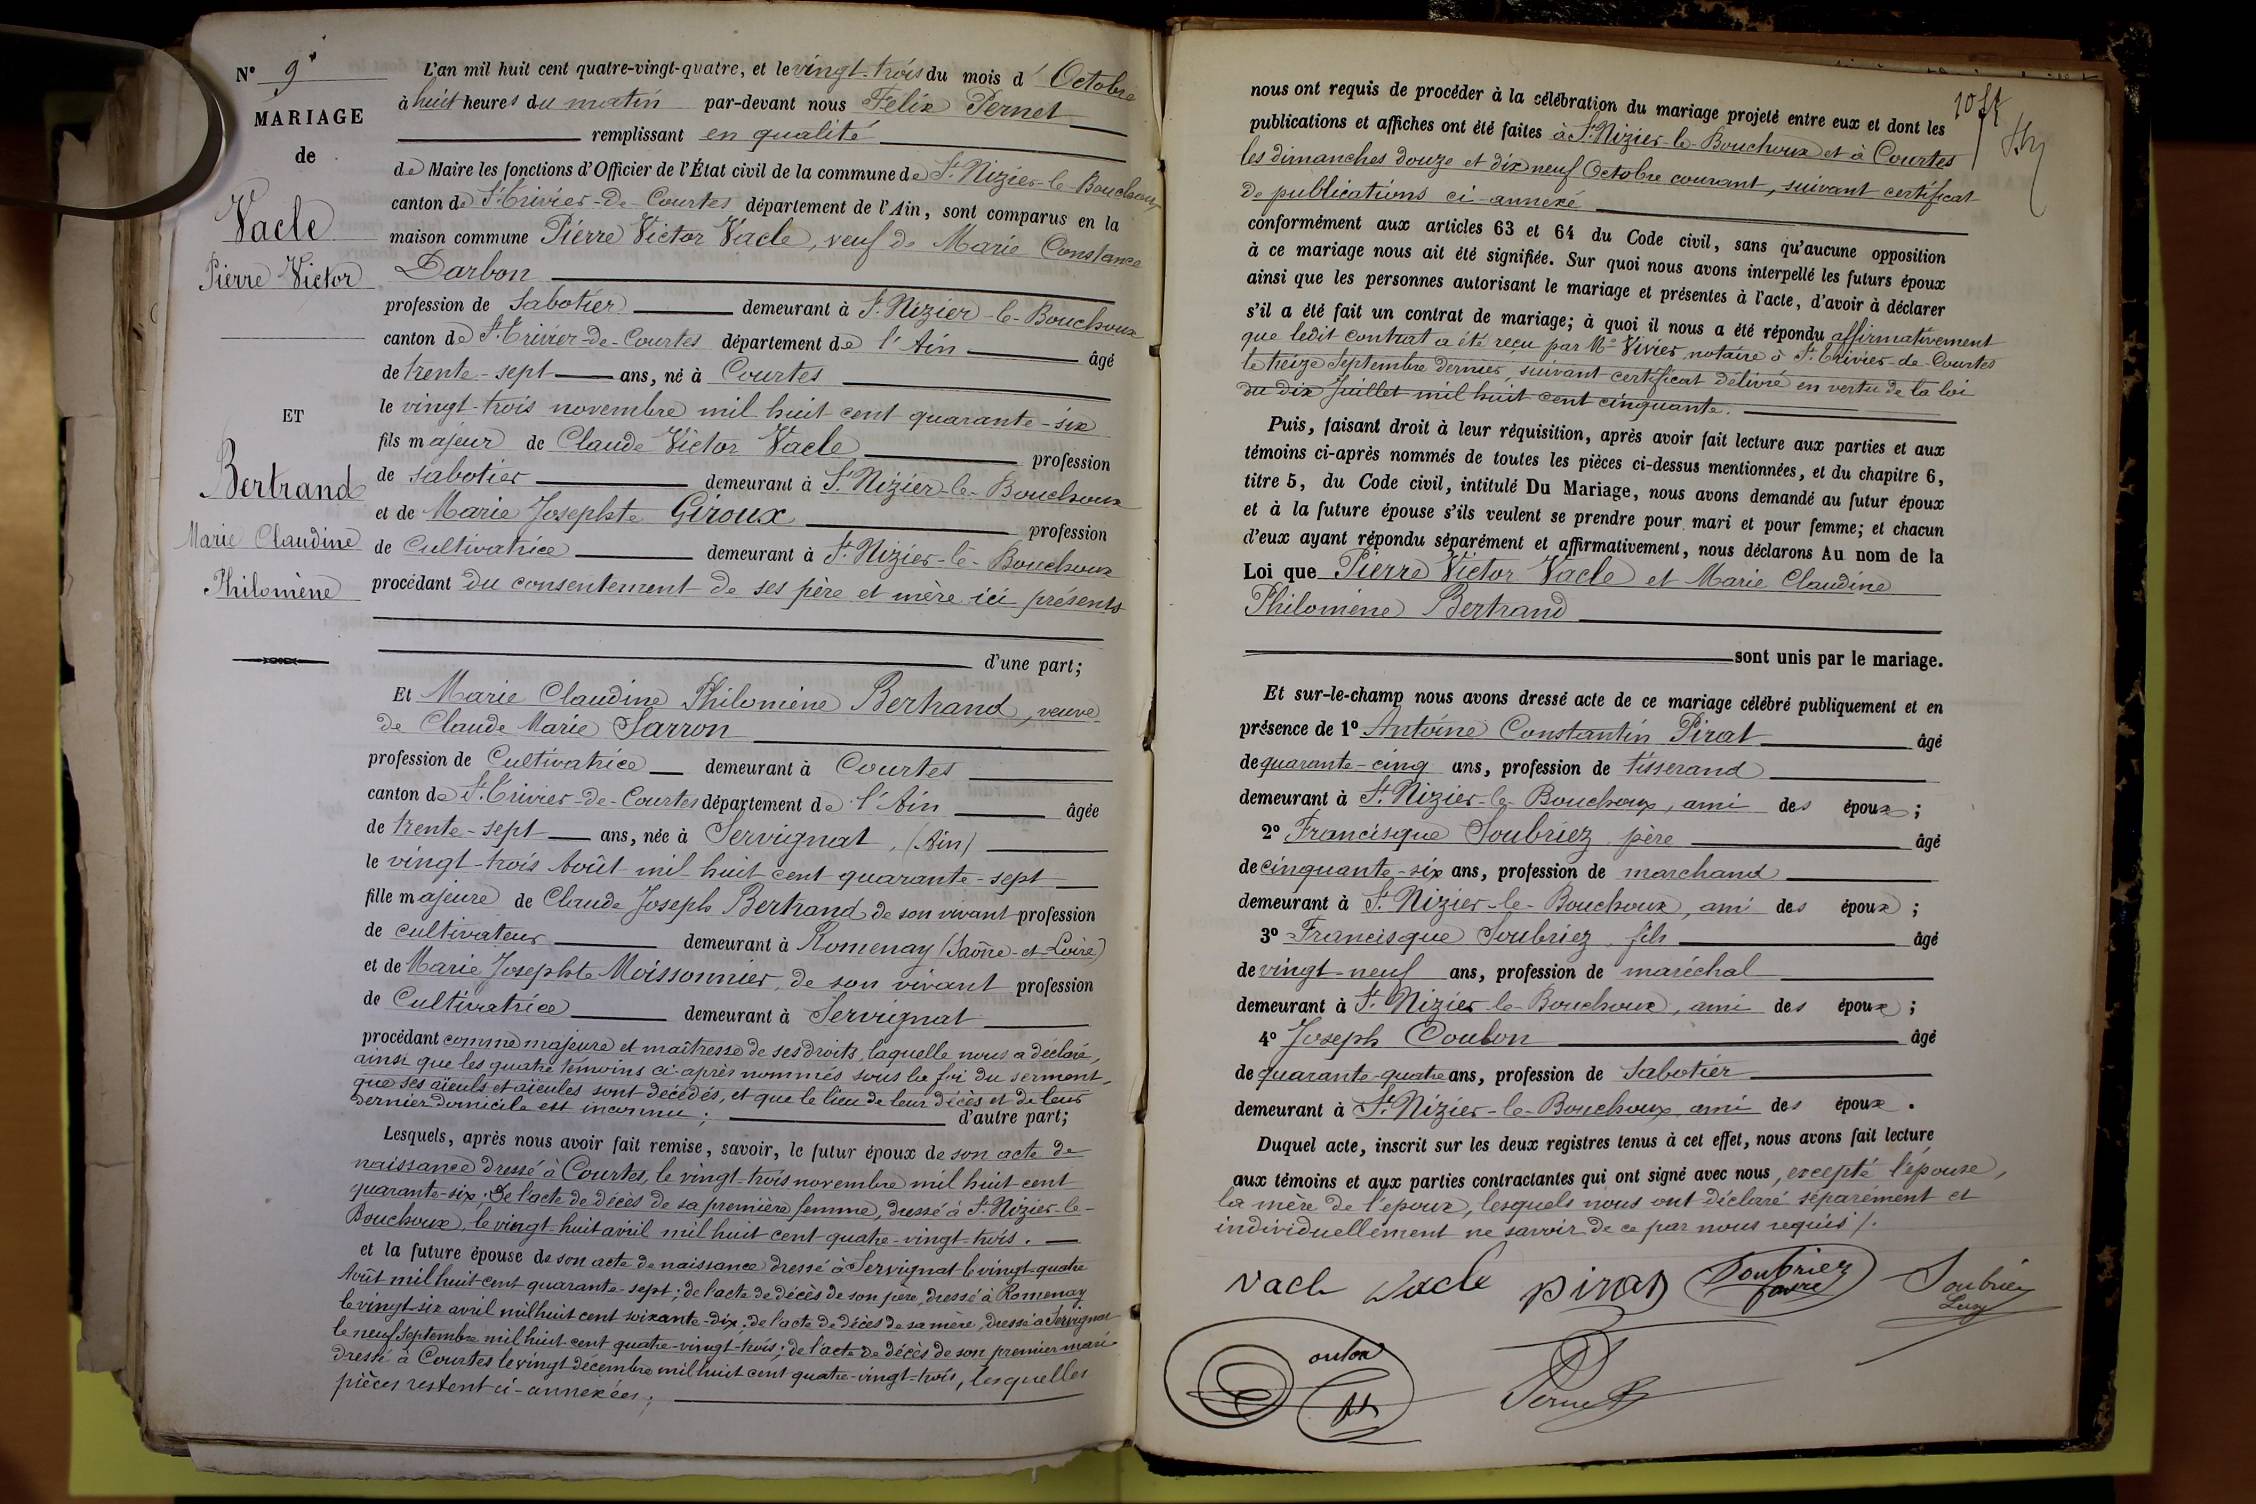 N° 9
MARIAGE
de
Vacle
Pierre Victor
ET
Bertrand
Marie Claudine
Philomène
L'an mil huit cent quatre-vingt-quatre, et le vingt-trois du mois d' Octobre
à huit heures du matin par-devant nous Felix Pernet
remplissant en qualité
de Maire les fonctions d'Officier de l'État civil de la commune de St Nizier-le-Bouchoux
canton de St Trivier-de-Courtes département de l'Ain, sont comparus en la
maison commune Pierre Victor Vacle, veuf de Marie Constance
Darbon
profession de Sabotier demeurant à St Nizier-le-Bouchoux
canton de St Trivier-de-Courtes département de l'Ain âgé
de trente-sept ans, né à Courtes
le vingt-trois novembre mil huit cent quarante-six
fils majeur de Claude Victor Vacle profession
de sabotier demeurant à St Nizier-le-Bouchoux
et de Marie Josephte Giroux profession
de Cultivatrice demeurant à St Nizier-le-Bouchoux
procédant du consentement de ses père et mère ici présents
d'une part;
Et Marie Claudine Philomène Bertrand, veuve
de Claude Marie Sarron
profession de Cultivatrice demeurant à Courtes
canton de St Trivier-de-Courtes département de l'Ain âgée
de trente-sept ans, née à Servignat, (Ain)
le vingt-trois Août mil huit cent quarante-sept
fille majeure de Claude Joseph Bertrand de son vivant profession
de cultivateur demeurant à Romenay (Saône-et-Loire)
et de Marie Josephte Moissonnier, de son vivant profession
de Cultivatrice demeurant à Servignat
procédant comme majeure et maîtresse de ses droits, laquelle nous a déclaré,
ainsi que les quatre témoins ci-après nommés sous la foi du serment,
que ses aïeuls et aïeules sont décédés, et que le lieu de leur décès et de leur
dernier domicile est inconnu; d'autre part;
Lesquels, après nous avoir fait remise, savoir, le futur époux de son acte de
naissance dressé à Courtes, le vingt-trois novembre mil huit cent
quarante-six; De l'acte de décès de sa première femme, dressé à St Nizier-le-
Bouchoux, le vingt-huit avril mil huit cent quatre-vingt-trois.
et la future épouse de son acte de naissance dressé à Servignat le vingt-quatre
Août mil huit cent quarante-sept; de l'acte de décès de son père, dressé à Romenay
le vingt-six avril mil huit cent soixante-dix; de l'acte de décès de sa mère, dressé à Servignat
le neuf Septembre mil huit cent quatre-vingt-trois; de l'acte de décès de son premier mari
dressé à Courtes le vingt décembre mil huit cent quatre-vingt-trois, lesquelles
pièces restent ci-annexées;
nous ont requis de procéder à la célébration du mariage projeté entre eux et dont les
publications et affiches ont été faites à St Nizier-le-Bouchoux et à Courtes
les dimanches douze et dix neuf Octobre courant, suivant certificat
de publications ci-annexé
conformément aux articles 63 et 64 du Code civil, sans qu'aucune opposition
à ce mariage nous ait été signifiée. Sur quoi nous avons interpellé les futurs époux
ainsi que les personnes autorisant le mariage et présentes à l'acte, d'avoir à déclarer
s'il a été fait un contrat de mariage; à quoi il nous a été répondu affirmativement
que ledit contrat a été reçu par Me Vivier notaire à St Trivier-de-Courtes
le treize Septembre dernier, suivant certificat délivré en vertu de la loi
du dix Juillet mil huit cent cinquante.
Puis, faisant droit à leur réquisition, après avoir fait lecture aux parties et aux
témoins ci-après nommés de toutes les pièces ci-dessus mentionnées, et du chapitre 6,
titre 5, du Code civil, intitulé Du Mariage, nous avons demandé au futur époux
et à la future épouse s'ils veulent se prendre pour mari et pour femme; et chacun
d'eux ayant répondu séparément et affirmativement, nous déclarons Au nom de la
Loi que Pierre Victor Vacle et Marie Claudine
Philomène Bertrand
sont unis par le mariage.
Et sur-le-champ nous avons dressé acte de ce mariage célébré publiquement et en
présence de 1° Antoine Constantin Pirat âgé
de quarante-cinq ans, profession de tisserand
demeurant à St Nizier-le-Bouchoux, ami des époux;
2° Francisque Soubriez père âgé
de cinquante-six ans, profession de marchand
demeurant à St Nizier-le-Bouchoux, ami des époux;
3° Francisque Soubriez fils âgé
de vingt-neuf ans, profession de maréchal
demeurant à St Nizier-le-Bouchoux, ami des époux;
4° Joseph Coulon âgé
de quarante-quatre ans, profession de Sabotier
demeurant à St Nizier-le-Bouchoux ami des époux.
Duquel acte, inscrit sur les deux registres tenus à cet effet, nous avons fait lecture
aux témoins et aux parties contractantes qui ont signé avec nous, excepté l'épouse,
la mère de l'époux, lesquels nous ont déclaré séparément et
individuellement ne savoir de ce par nous requis /.
Vacle Vacle Pirat Soubriez Soubriez
oulon
Pernet